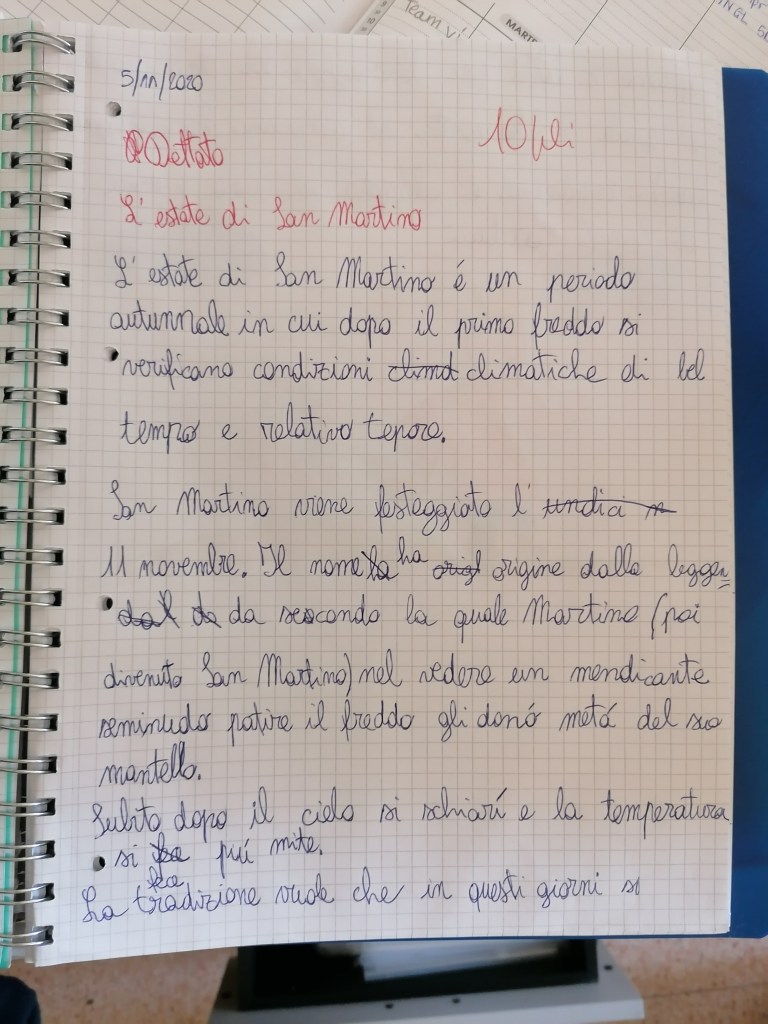 Team Vi
MARTE
NGL
5/11/2020
Dettato
L'estate di San Martino
L'estate di San Martino é un periodo
autunnale in cui dopo il primo freddo si
verificano condizioni climat climatiche di bel
tempo e relativo tepore.
San Martino viene festeggiato l' undici n
11 novembre. Il nome ha orig origine dalla leggen=
dal da da secondo la quale Martino (poi
divenuto San Martino) nel vedere un mendicante
seminudo patire il freddo gli donó metá del suo
mantello.
Subito dopo il cielo si schiarí e la temperatura
si piú mite.
La tradizione vuole che in questi giorni si